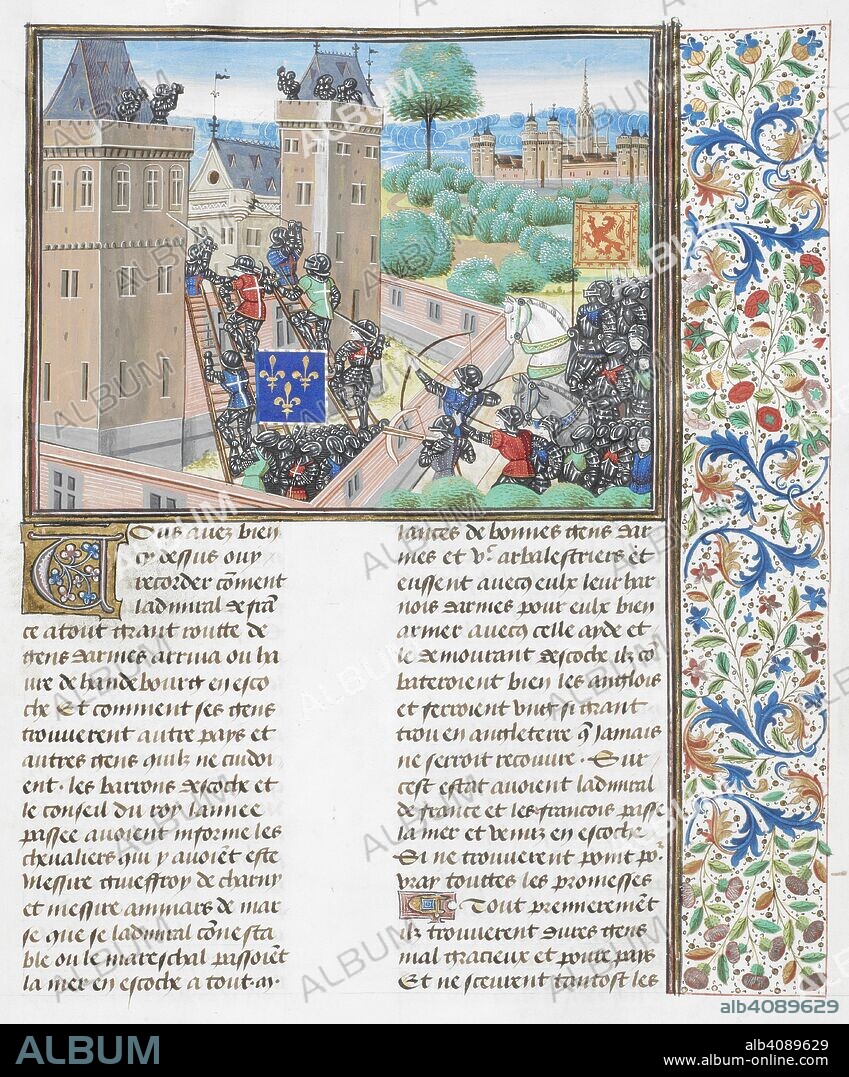 Vous avez bien
cy dessus ouy
recorder cōment
ladmiral de fran
ce atout grant routte de
gens darmes arriva ou ha
vre de handebourg en esco
che Et comment ses gens
trouverent autre pays et
autres gens quilz ne cuidoi
ent. les barons descoche et
le conseil du roy lannee
passee avoient informe les
chevaliers qui y avoiēt este
messire gueffroy de charny
et messire aimars de mar
se que se ladmiral cōnesta
ble ou le mareschal passoiēt
la mer en escoche a tout .m.
lances de bonnes gens dar
mes et vᶜ arbalestriers et
eussent avecq eulx leur har
nois darmes pour eulx bien
armer avecq celle ayde et
le demourant descoche ilz cō
bateroient bien les anglois
et feroient ung si grant
trou en angleterre q̄ jamais
ne serroit recouvre. Sur
cest estat avoient ladmiral
de france et les francois passe
la mer et venuz en escoche
Si ne trouverent point po.ʳ
vray touttes les promesses
Tout premierement
ilz trouverent dures gens
mal gracieux et povre pays
Et ne sceurent tantost les
alb4089629
ALBUM
alb4089629
www.album-online.com